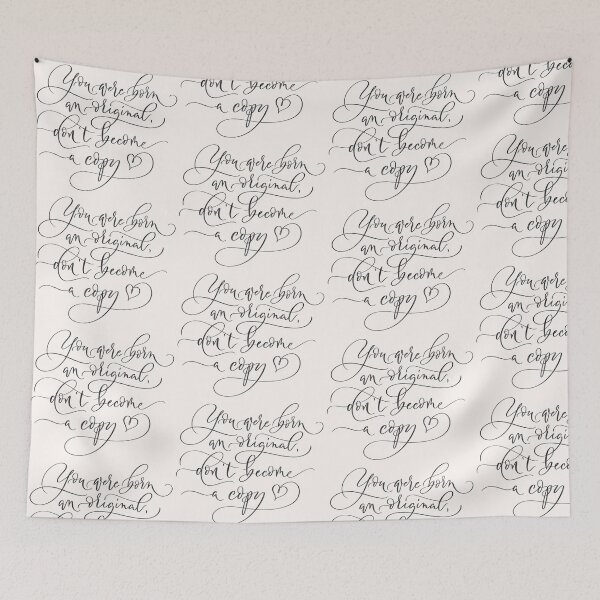 You were born
an original,
don't become
a copy ♡
You were born
an original,
don't become
a copy ♡
You were born
an original,
don't become
a copy ♡
You were born
an original,
don't become
a copy ♡
You were born
an original,
don't become
a copy ♡
You were born
an original,
don't become
a copy ♡
You were born
an original,
don't become
a copy ♡
You were born
an original,
don't become
a copy ♡
You were born
an original,
don't become
a copy ♡
You were born
an original,
don't
a copy
You were
an original,
don't
a copy
You were
an original,
don't
a copy
You were
an original,
don't
a copy